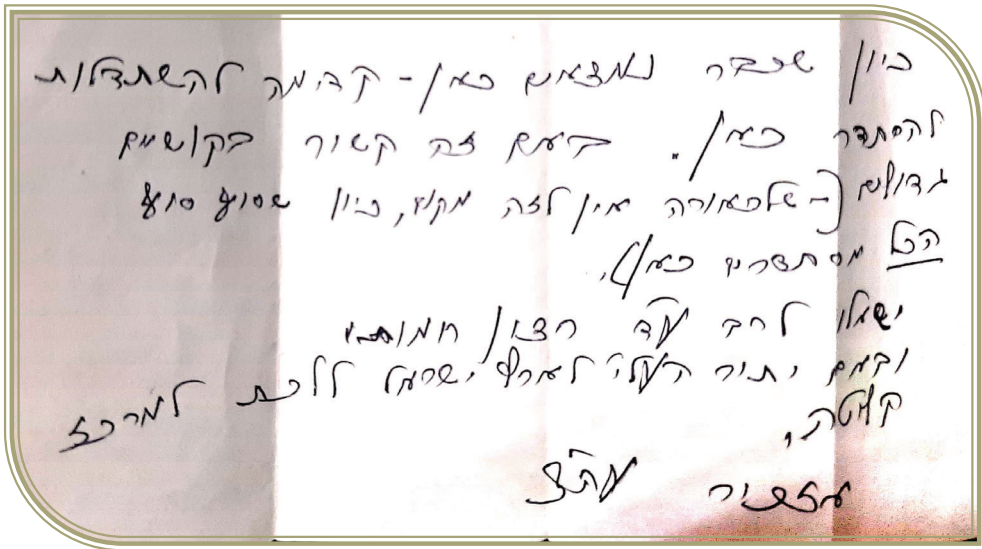 כיון שכבר נמצאים כאן - קדימה להשתדלות
להסתדר כאן. באם זה קשור בקושיים
גדולים (- שלכאורה אין לזה מקום, כיון שסוף סוף
הכל מסתדרים כאן),
ישאלו לרב ע"ד רצון
ובאם יתיר העלי' לארץ ישראל ללכת למרכז
קליטה.
אזכיר עה"צ